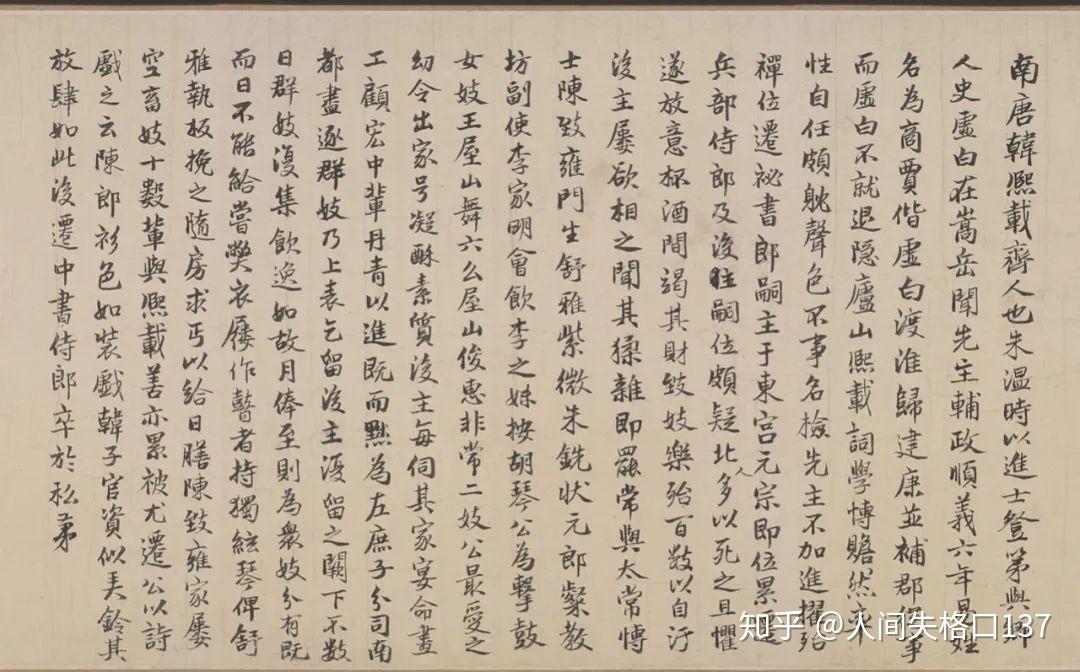 南唐韓熙載齊人也朱温時以進士登第與鄉
人史虛白在嵩岳聞先生輔政順義六年易姓
名為商賈偕虛白渡淮歸建康並補郡從事
而虛白不就退隐廬山熙載詞學博贍然率
性自任頗躭聲色不事名檢先主不加進擢殆
禪位遷祕書郎嗣主于東宮元宗即位累遷
兵部侍郎及後主嗣位頗疑北人多以死之且懼
遂放意杯酒間竭其財致妓樂殆百數以自汙
後主屢欲相之聞其猱雜即罷常與太常博
士陳致雍門生舒雅紫微朱銑狀元郎粲教
坊副使李家明會飲李之妹按胡琴公為擊鼓
女妓王屋山舞六么屋山俊惠非常二妓公最愛之
幼令出家号凝酥素質後主每伺其家宴命畫
工顧宏中輩丹青以進既而黜為左庶子分司南
都盡逐群妓乃上表乞留後主復留之闕下不數
日群妓復集飲逸如故月俸至則為衆妓分有既
而日不能給嘗弊衣屨作瞽者持獨絃琴俾舒
雅執板挽之隨房求丐以給日膳陳致雍家屢
空畜妓十數輩與熙載善亦累被尤遷公以詩
戲之云陳郎衫色如裝戲韓子官資似美鈴其
放肆如此後遷中書侍郎卒於私第
知乎 @人间失格口137